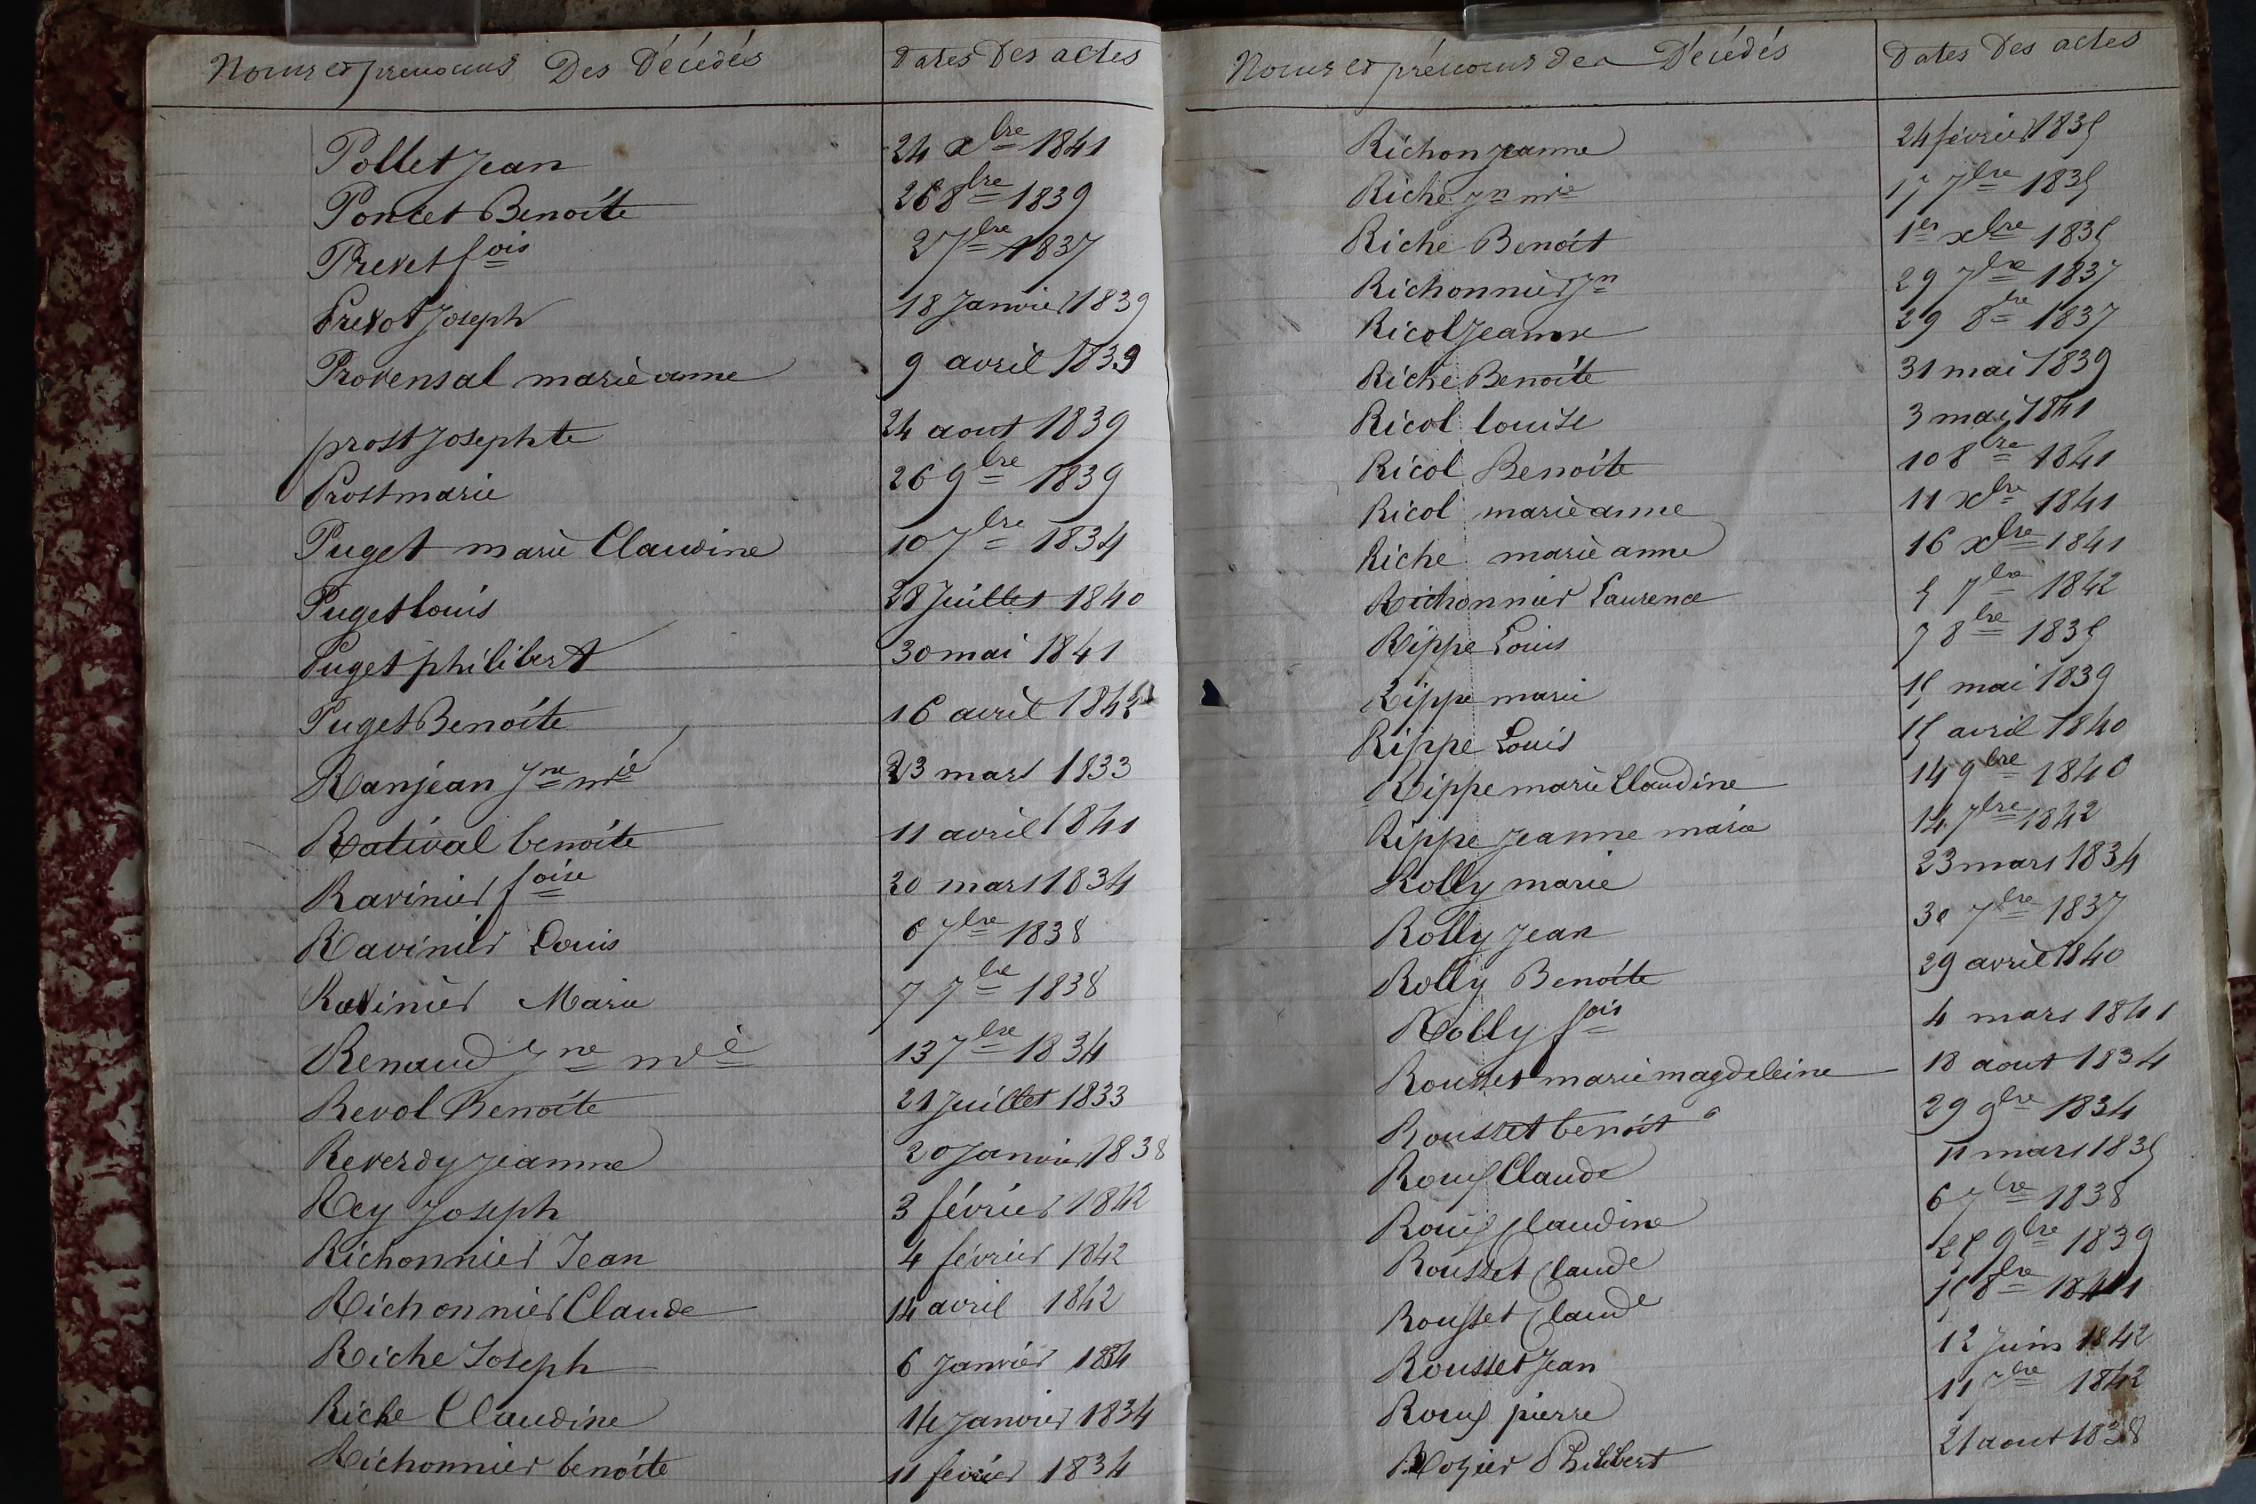 Noms et prenoms Des Décédés Dates Des actes
Pollet Jean 24 xbre 1841
Poncet Benoîte 26 8bre 1839
Prevet fois 2 7bre 1837
Prevot Joseph 18 Janvier 1839
Provensal marie anne 9 avril 1839
prost Josephte 24 aout 1839
Prost marie 26 9bre 1839
Puget marie Claudine 10 7bre 1834
Puget louis 28 Juillet 1840
Puget philibert 30 mai 1841
Puget Benoîte 16 avril 1842
Ranjean Jne mie 23 mars 1833
Ratival benoite 11 avril 1841
Ravinier foise 20 mars 1834
Ravinier Louis 6 7bre 1838
Ravinier Marie 7 7bre 1838
Renaud Jne mie 13 7bre 1834
Revol Benoîte 21 Juillet 1833
Reverdy Jeanne 20 Janvier 1838
Rey Joseph 3 février 1842
Richonnier Jean 4 février 1842
Richonnier Claude 14 avril 1842
Riche Joseph 6 Janvier 1834
Riche Claudine 14 Janvier 1834
Richonnier benoîte 11 fevrier 1834
Noms et prénoms des Décédés Dates Des actes
Richon Jeanne 24 février 1835
Riche Jn mie 17 7bre 1835
Riche Benoit 1er xbre 1835
Richonnier Jn 29 7bre 1837
Ricol Jeanne 29 8bre 1837
Riche Benoîte 31 mai 1839
Ricol louise 3 mai 1841
Ricol Benoîte 10 8bre 1841
Ricol marie anne 11 xbre 1841
Riche marie anne 16 xbre 1841
Richonnier Laurence 5 7bre 1842
Rippe Louis 7 8bre 1835
Rippe marie 15 mai 1839
Rippe Louis 15 avril 1840
Rippe marie Claudine 14 9bre 1840
Rippe Jeanne marie 14 7bre 1842
Rolly marie 23 mars 1834
Rolly Jean 30 7bre 1837
Rolly Benoîte 29 avril 1840
Rolly fois 4 mars 1841
Rousset marie magdeleine 18 aout 1834
Rousset benoit 29 9bre 1834
Rouf Claude 11 mars 1835
Rouf Claudine 6 7bre 1838
Rousset Claude 25 9bre 1839
Rousset Claude 15 8bre 1841
Rousset Jean 12 Juin 1842
Rouf pierre 11 7bre 1842
Rozier Philibert 21 aout 1838